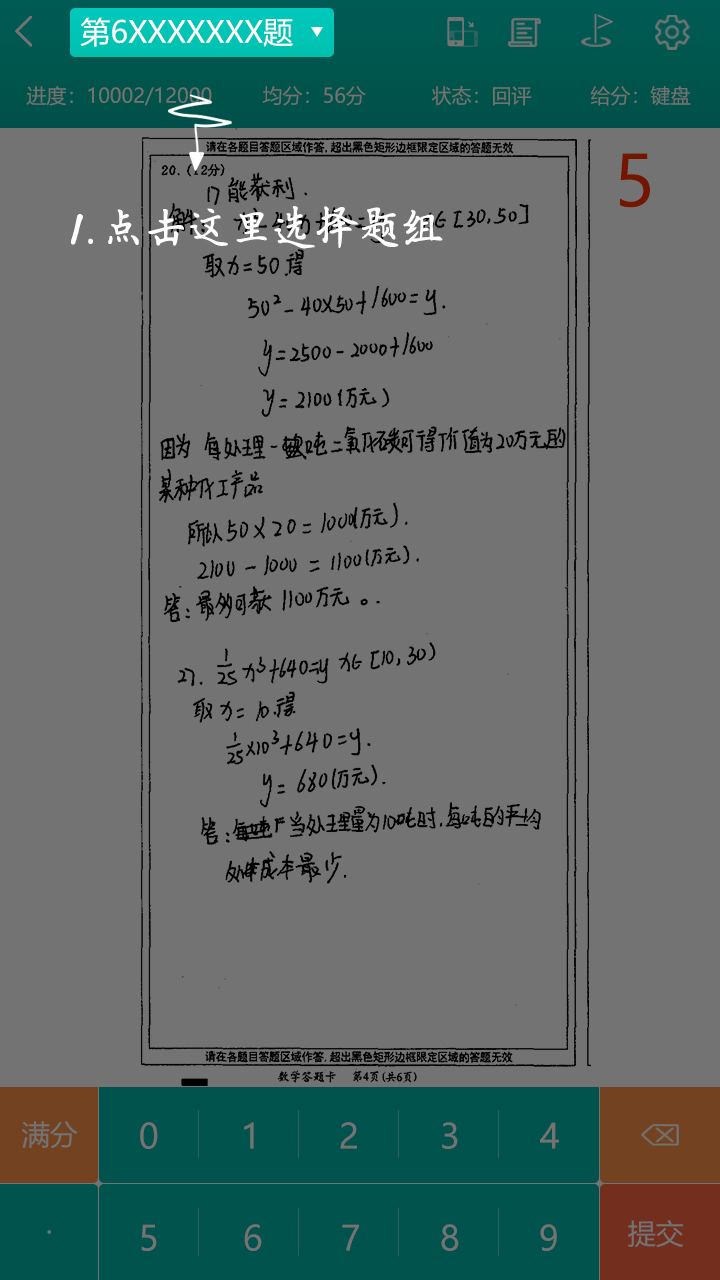 第6XXXXXXX题
进度：10002/12000 均分：56分 状态：回评 给分：键盘
请在各题目答题区域作答，超出黑色矩形边框限定区域的答题无效
5
20.（12分）
能获利.
1.点击这里选择题组
∈[30,50]
取x=50得
50²-40×50+1600=y.
y=2500-2000+1600
y=2100(万元)
因为 每处理一吨二氧化碳可得价值为20万元的
某种化工产品
所以50×20=1000(万元).
2100-1000=1100(万元).
答:最多可获1100万元。.
27. 1/25x³+640=y x∈[10,30)
取x=10得
1/25×10³+640=y.
y=680(万元).
答: 当处理量为10吨时,每吨的平均
成本最少.
请在各题目答题区域作答，超出黑色矩形边框限定区域的答题无效
数学答题卡 第4页(共6页)
满分 0 1 2 3 4
. 5 6 7 8 9 提交